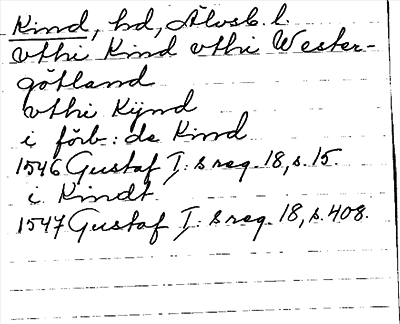 Kind, hd, Älvsb. l.
vthi Kind vthi Wester-
götland
vthi Kijnd
i förb.: de Kind
1546 Gustaf I: s reg. 18, s. 15.
i Kindt
1547 Gustaf I: s reg. 18, s. 408.